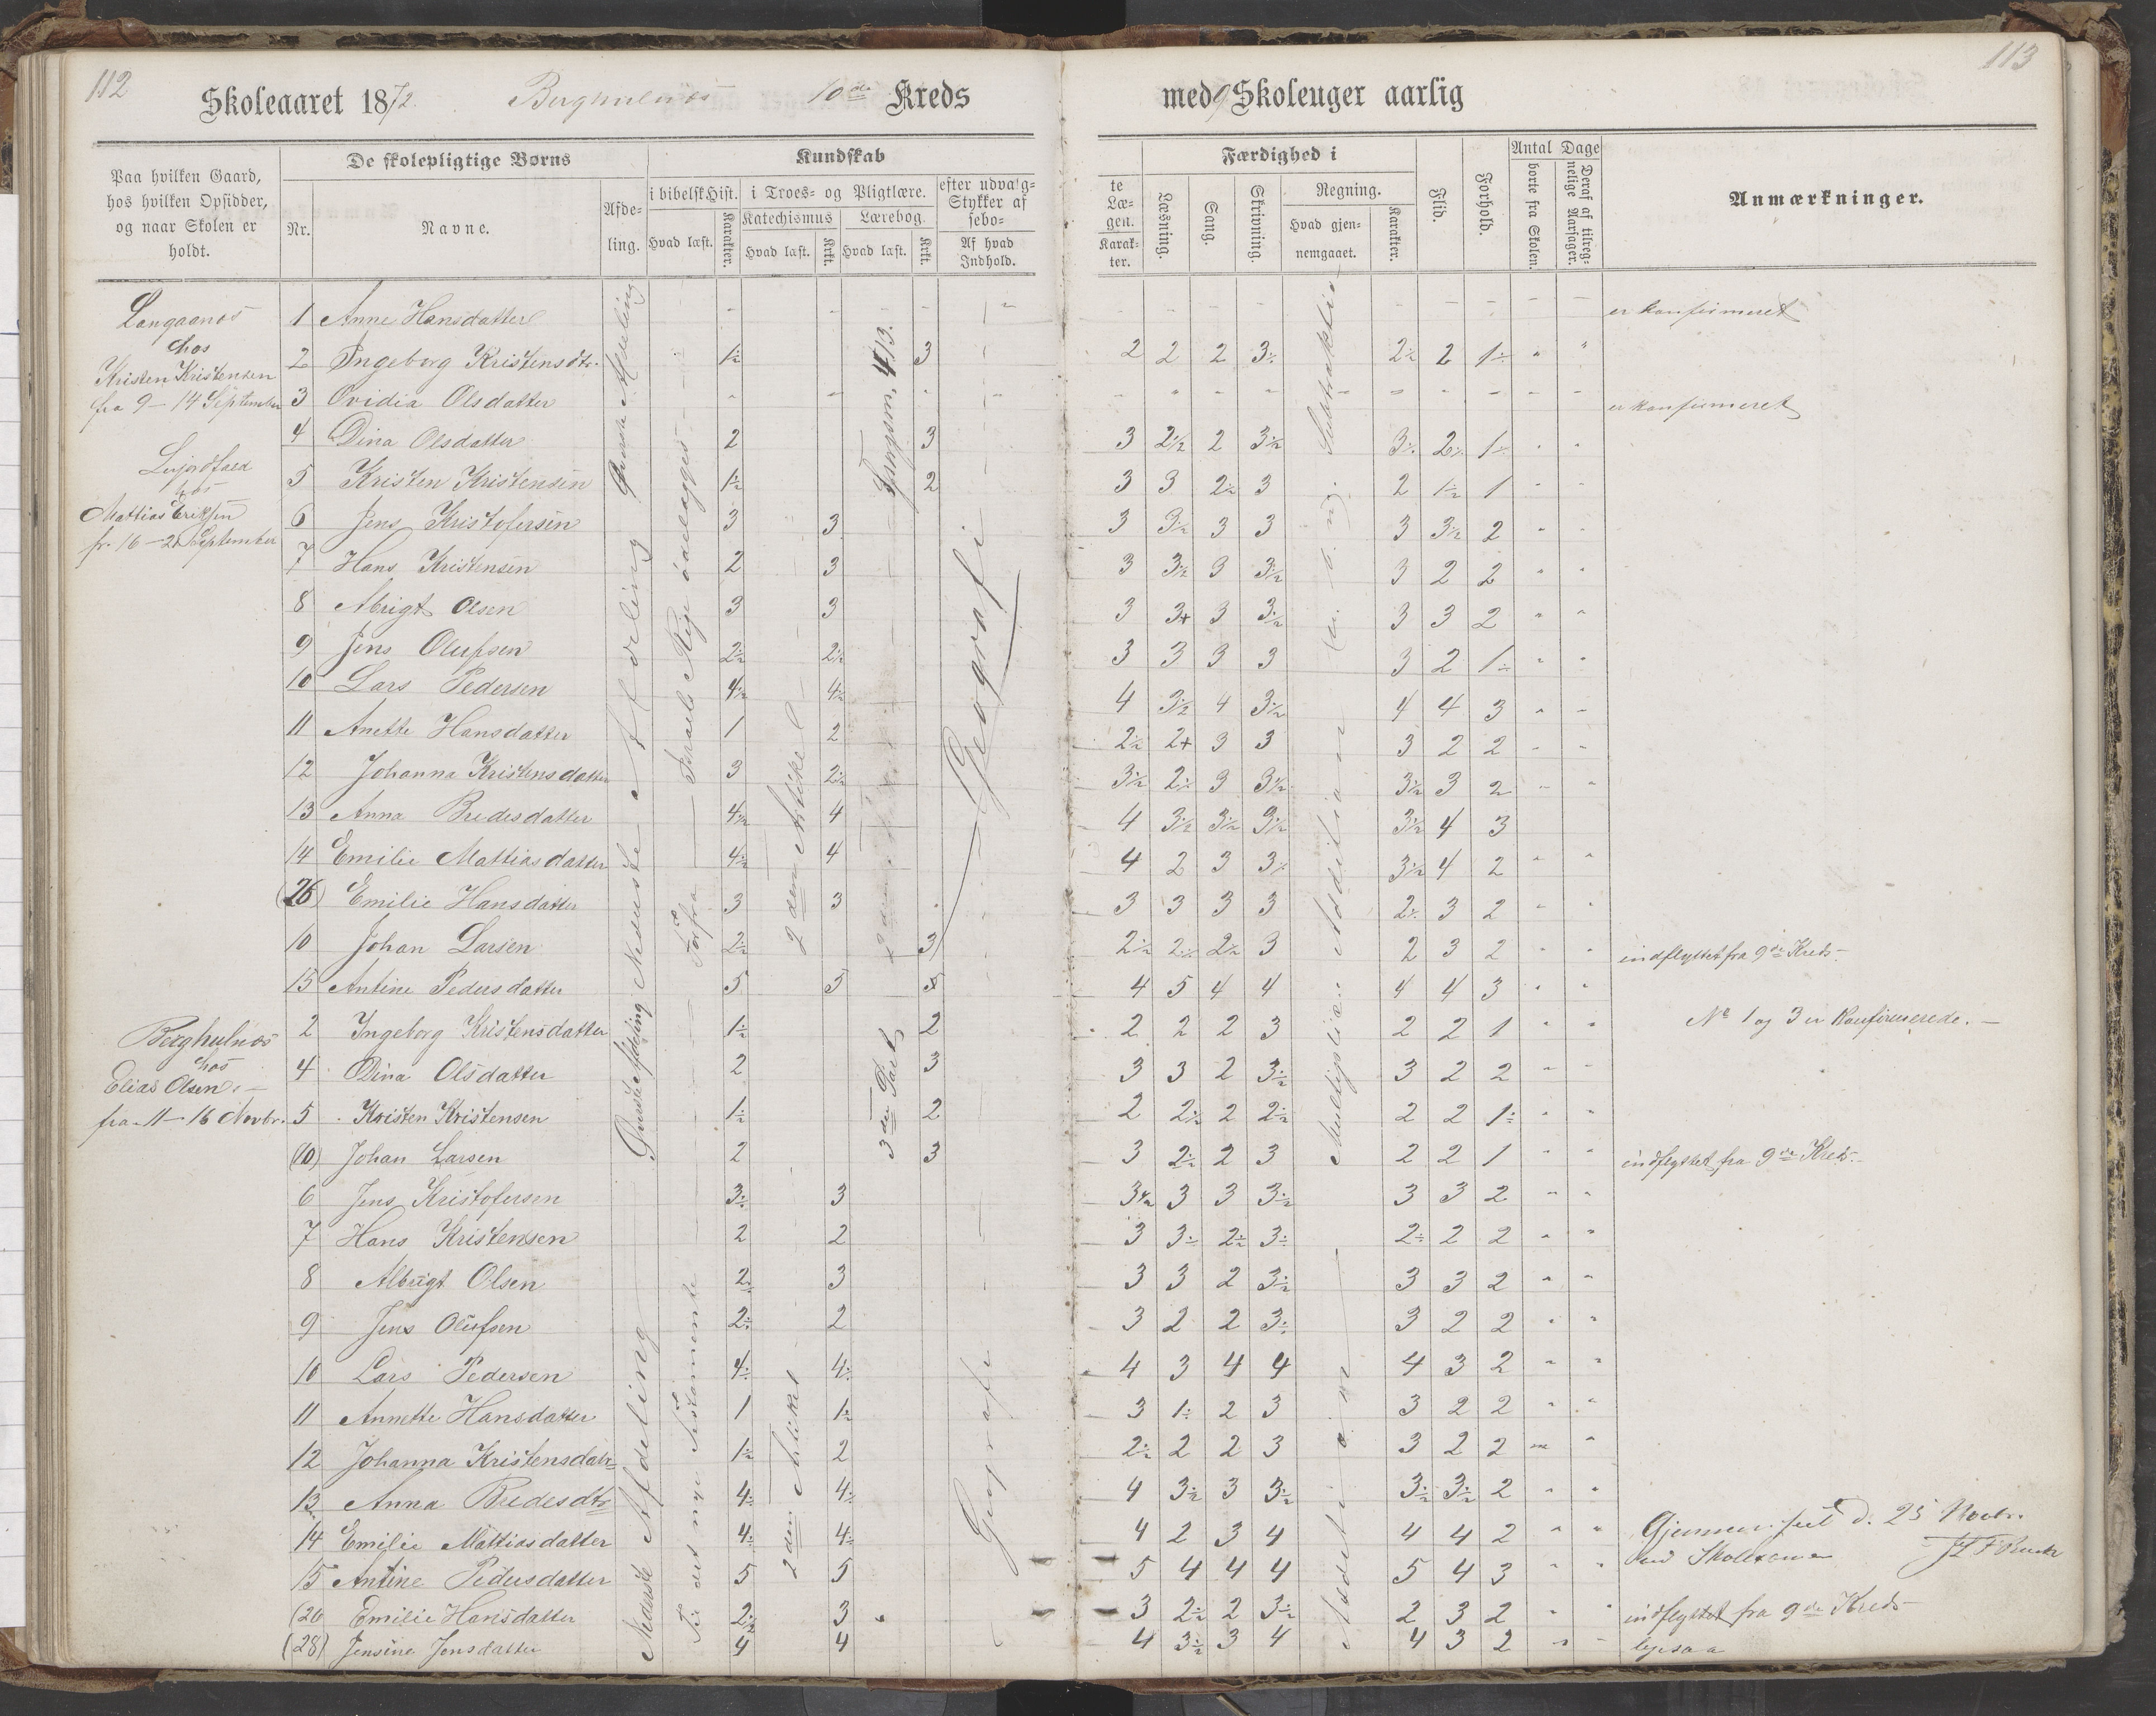 112
Skoleaaret 1872. Berghulnes 10de Kreds
113
med 9 Skoleuger aarlig
Paa hvilken Gaard, hos hvilken Opsidder, og naar Skolen er holdt.
De skolepligtige Børns
Nr.
Navne.
Afdeling.
Kundskab
i bibelsk Hist.
Hvad læst.
Karakter.
i Troes- og Pligtlære.
Katechismus
Hvad læst.
Krkt.
Lærebog.
Hvad læst.
Krkt.
efter udvalg-
Stykker af
sebo-
Af hvad
Indhold.
te
Læ-
gen.
Karak-
ter.
Færdighed i
Læsning.
Sang.
Skrivning.
Regning.
Hvad gjen-
nemgaaet.
Karakter.
Flid.
Forhold.
Antal Dage
borte fra Skolen.
Deraf af tilreg-
nelige Aarsager.
Anmærkninger.
Langaanes
hos
Kristen Kristensen
fra 9–14 September
hos
Mattias Eriksen
fr. 16–21 September
Berghulnes
hos
Elias Olsen
fra 11–16 Novbr.
Nederste Afdeling
2den Artikel
Geografi
Addition
Multiplikation
3die Part
Nederste Afdeling
2den Artikel
Geografi
Addition
1 Anne Hansdatter - - - - - er konfirmeret
2 Ingeborg Kristensdtr. 1½ 3 2 2 2 3÷ 2½ 2 1÷ " "
3 Ovidia Olsdatter - - - - - er konfirmeret
4 Dina Olsdatter 2 3 3 2½ 2 3½ 3÷ 2÷ 1÷ " "
5 Kristen Kristensen 1½ 2 3 3 2½ 3 2 1½ 1 " "
6 Jens Kristofersen 3 3 3 3½ 3 3 3 3½ 2 " "
7 Hans Kristensen 2 3 3 3½ 3 3½ 3 2 2 " "
8 Abrigt Olsen 3 3 3 3+ 3 3½ 3 3 2 " "
9 Jens Olufsen 2½ 2½ 3 3 3 3 3 2 1÷ " "
10 Lars Pedersen 4½ 4½ 4 3½ 4 3½ 4 4 3 " "
11 Anette Hansdatter 1 2 2½ 2+ 3 3 3 2 2 " "
12 Johanna Kristensdatter 3 2½ 3½ 2½ 3 3½ 3½ 3 2 " "
13 Anna Bredesdatter 4½ 4 4 3½ 3½ 3½ 3½ 4 3
14 Emilie Mattiasdatter 4½ 4 4 2 3 3½ 3½ 4 2 " "
(26) Emilie Hansdatter 3 3 3 3 3 3 2÷ 3 2 " "
10 Johan Larsen 2½ 3 2½ 2½ 2½ 3 2 3 2 " " indflyttet fra 9de Kreds.
15 Antine Pedersdatter 5 5 5 4 5 4 4 4 4 3 " "
No 1 og 3 er Konfirmerede.
2 Ingeborg Kristensdatter 1½ 2 2 2 2 3 2 2 1 " "
4 Dina Olsdatter 2 3 3 3 2 3½ 3 2 2 " "
5 Kristen Kristensen 1½ 2 2 2½ 2 2½ 2 2 1÷ " "
(10) Johan Larsen 2 3 3 2½ 2 3 2 2 1 " " indflyttet fra 9de Kreds.
6 Jens Kristofersen 3÷ 3 3½ 3 3 3½ 3 3 2 " "
7 Hans Kristensen 2 2 3 3÷ 2½ 3÷ 2÷ 2 2 " "
8 Albrigt Olsen 2÷ 3 3 3 2 3½ 3 3 2 " "
9 Jens Olufsen 2÷ 2 3 2 2 3÷ 3 2 2 " "
10 Lars Pedersen 4÷ 4÷ 4 3 4 4 4 3 2 " "
11 Annette Hansdatter 1 1½ 3 1÷ 2 3 3 2 2 " "
12 Johanna Kristensdatr 1½ 2 2½ 2 2 3 3 2 2 " "
13 Anna Bredesdtr 4÷ 4÷ 4 3½ 3 3½ 3½ 3½ 2 " "
14 Emilie Mattiasdatter 4÷ 4÷ 4 2 3 4 4 4 2 " "
Gjennemseet d. 25 Novbr.
15 Antine Pedersdatter 5 5 5 4 4 4 5 4 3 " "
(26 Emilie Hansdatter 2½ 3 3 2½ 2 3½ 2 3 2 " " indflyttet fra 9de Kreds
(28) Jensine Jensdatter 4 4 4 3½ 3 4 4 3 2 " " ligesaa